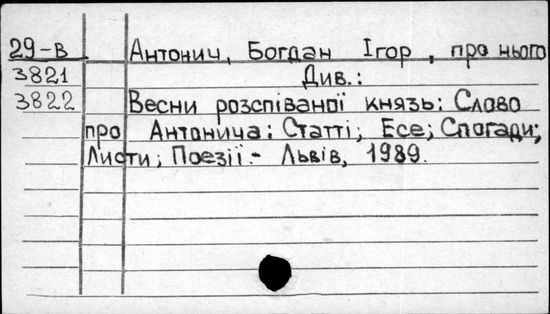 29-В Антонич, Богдан Ігор, про нього
3821 Див.:
3822 Весни розспіваної князь: Слово
про Антонича; Статті; Есе; Спогади;
Листи; Поезії - Львів, 1989.